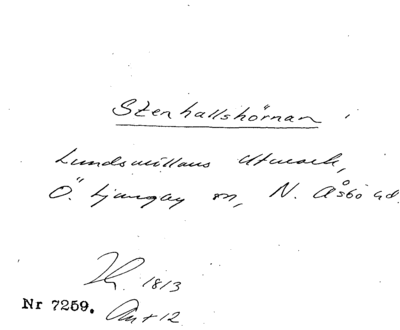 Stenhallshörnan
Lundsmöllans Utmark,
Ö. Ljungby sn, N. Åsbo hd.
1813
Nr 7259. Ant 12